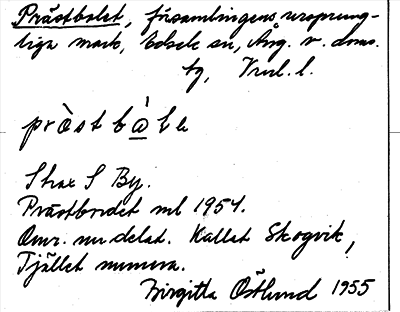 Prästbolet, församlingens ursprung-
liga mark, Edsele sn, Ång. v. doms.
tg, Vnrl. l.
prὰstbὼlε
Strax S By.
Prästbordet ml 1954.
Omr. nu delat. Kallat Skogvik,
Tjället numera.
Birgitta Östlund 1955